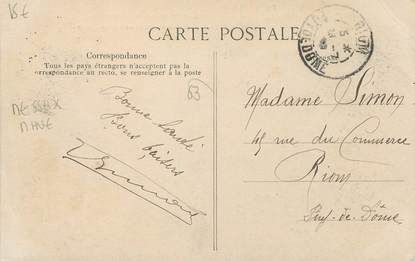 15€
CARTE POSTALE
Correspondance
Tous les pays étrangers n'acceptent pas la
correspondance au recto, se renseigner à la poste
63
Bonne Santé
Bons baisers
Madame Simon
rue du Commerce
Riom
Puy-de-Dôme
RIOM
PUY-DE-DOME